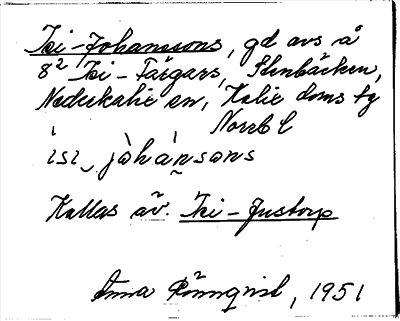 Isi-Johanssons, gd avs å
8² Isi-Färgars, Stenbäcken,
Nederkalix sn, Kalix doms tg
Norrb l
isi johánsons
Kallas äv. Isi-Justorp
Anna Rönnqvist, 1951